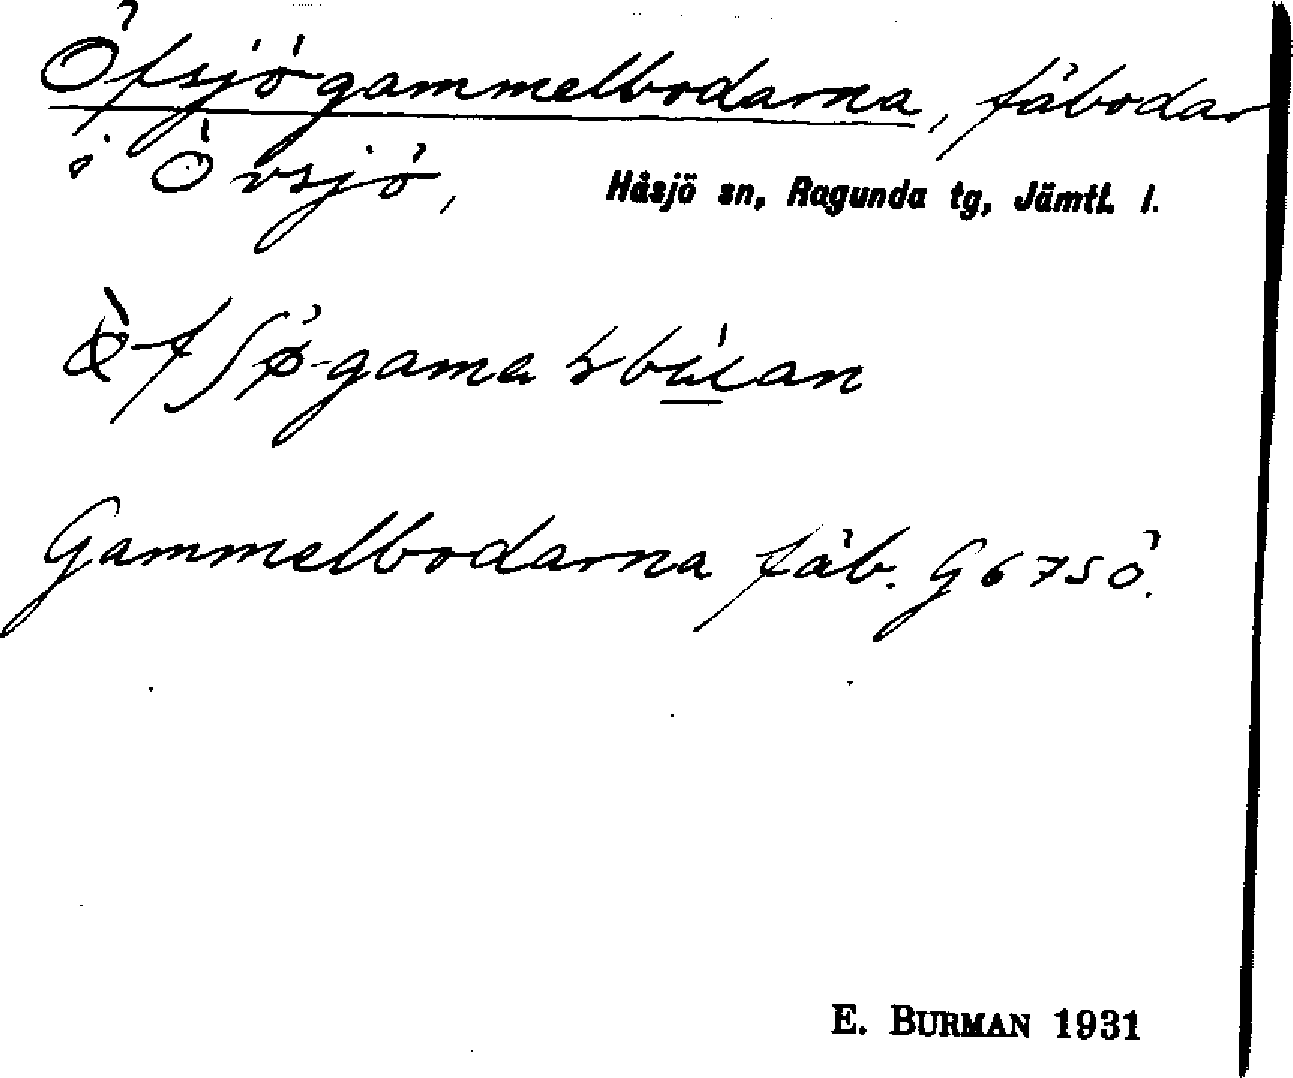 Öfsjögammelbodarna, fäbodar
i Övsjö, Håsjö sn, Ragunda tg, Jämtl. l.
Gammelbodarna fäb. G6750.
E. BURMAN 1931